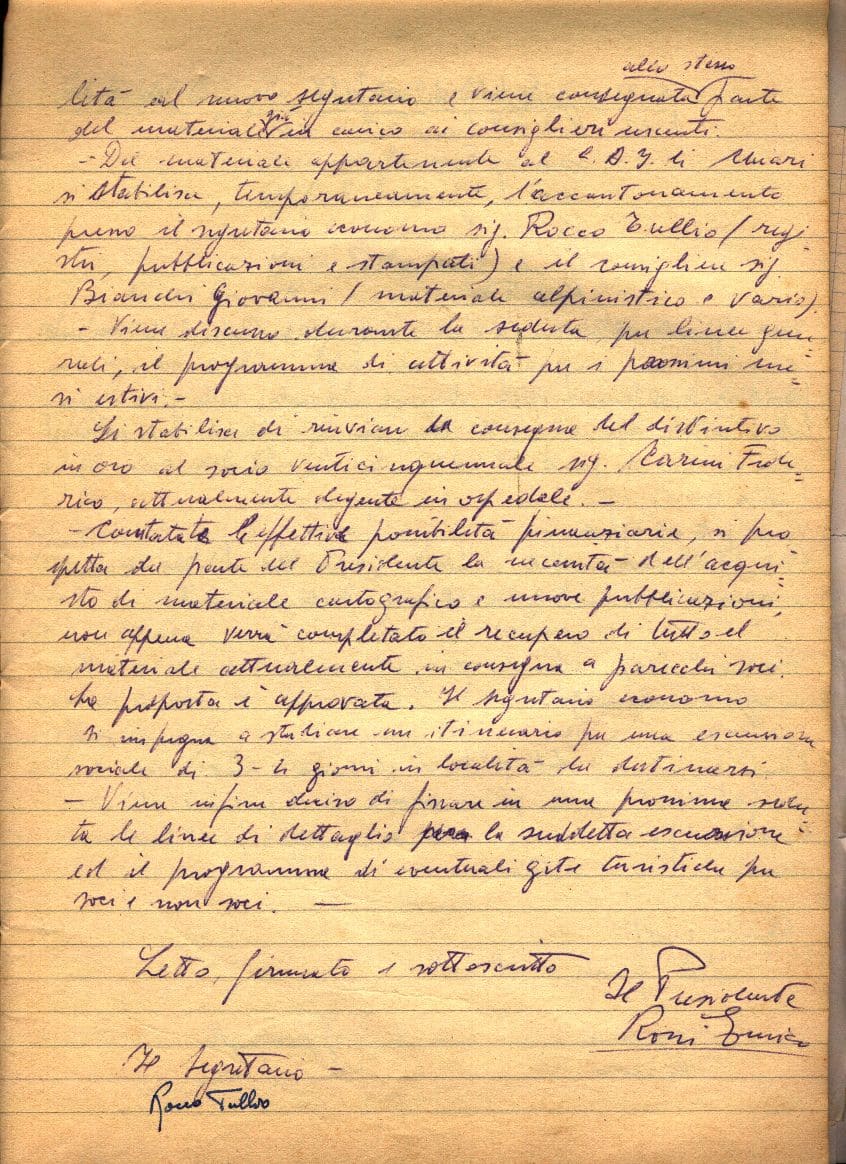 allo stesso
lità al nuovo segretario e viene consegnata parte
del materiale già in carico ai consiglieri uscenti.
- Del materiale appartenente al C.A.I. di Chiari
si stabilisce, temporaneamente, l'accantonamento
presso il segretario economo sig. Rocco Tullio (regi
stri, pubblicazioni e stampati) e il consigliere sig.
Bianchi Giovanni (materiale alpinistico e vario).
- Viene discusso durante la seduta, per linee gene=
rali, il programma di attività per i prossimi me=
si estivi.-
Si stabilisce di rinviare la consegna del distintivo
in oro al socio venticinquennale sig. Carini Fede=
rico, attualmente degente in ospedale. -
- Constatate le effettive possibilità finanziarie, si pro
spetta da parte del Presidente la necessità dell'acqui=
sto di materiale cartografico e nuove pubblicazioni,
non appena verrà completato il recupero di tutto il
materiale attualmente in consegna a parecchi soci.
La proposta è approvata. Il segretario economo
si impegna a studiare un itinerario per una escursione
sociale di 3-4 giorni in località da destinarsi.
- Viene infine deciso di fissare in una prossima sedu=
ta le linee di dettaglio per la suddetta escursione
ed il programma di eventuali gite turistiche per
soci e non soci. —
Letto, firmato e sottoscritto
Il Presidente
Rossi Enrico
Il Segretario -
Rocco Tullio